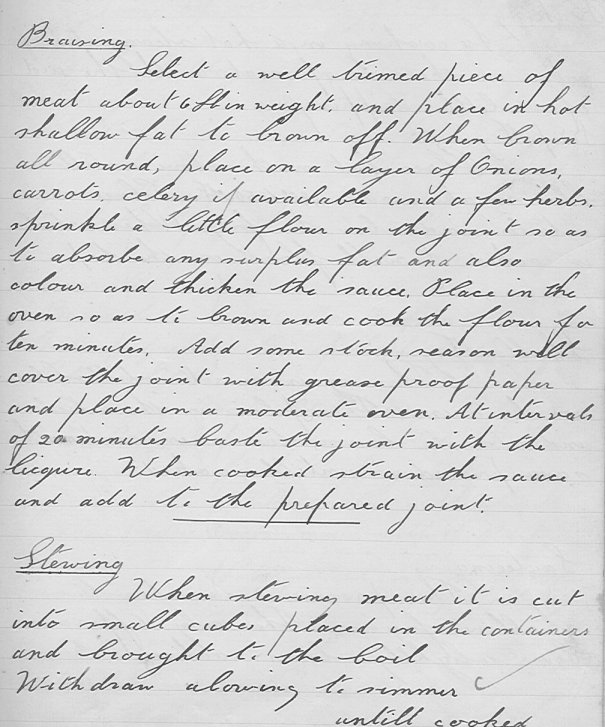 Braising.
Select a well trimed piece of
meat about 6 lb in weight, and place in hot
shallow fat to brown off. When brown
all round, place on a layer of Onions,
carrots, celery if available and a few herbs.
sprinkle a little flour on the joint so as
to absorbe any surplus fat and also
colour and thicken the sauce. Place in the
oven so as to brown and cook the flour for
ten minutes. Add some stock, season well
cover the joint with grease proof paper
and place in a moderate oven. At intervals
of 20 minutes baste the joint with the
licqure. When cooked strain the sauce
and add to the prepared joint.
Stewing
When stewing meat it is cut
into small cubes placed in the containers
and brought to the boil
Withdraw alowing to simmer
untill cooked